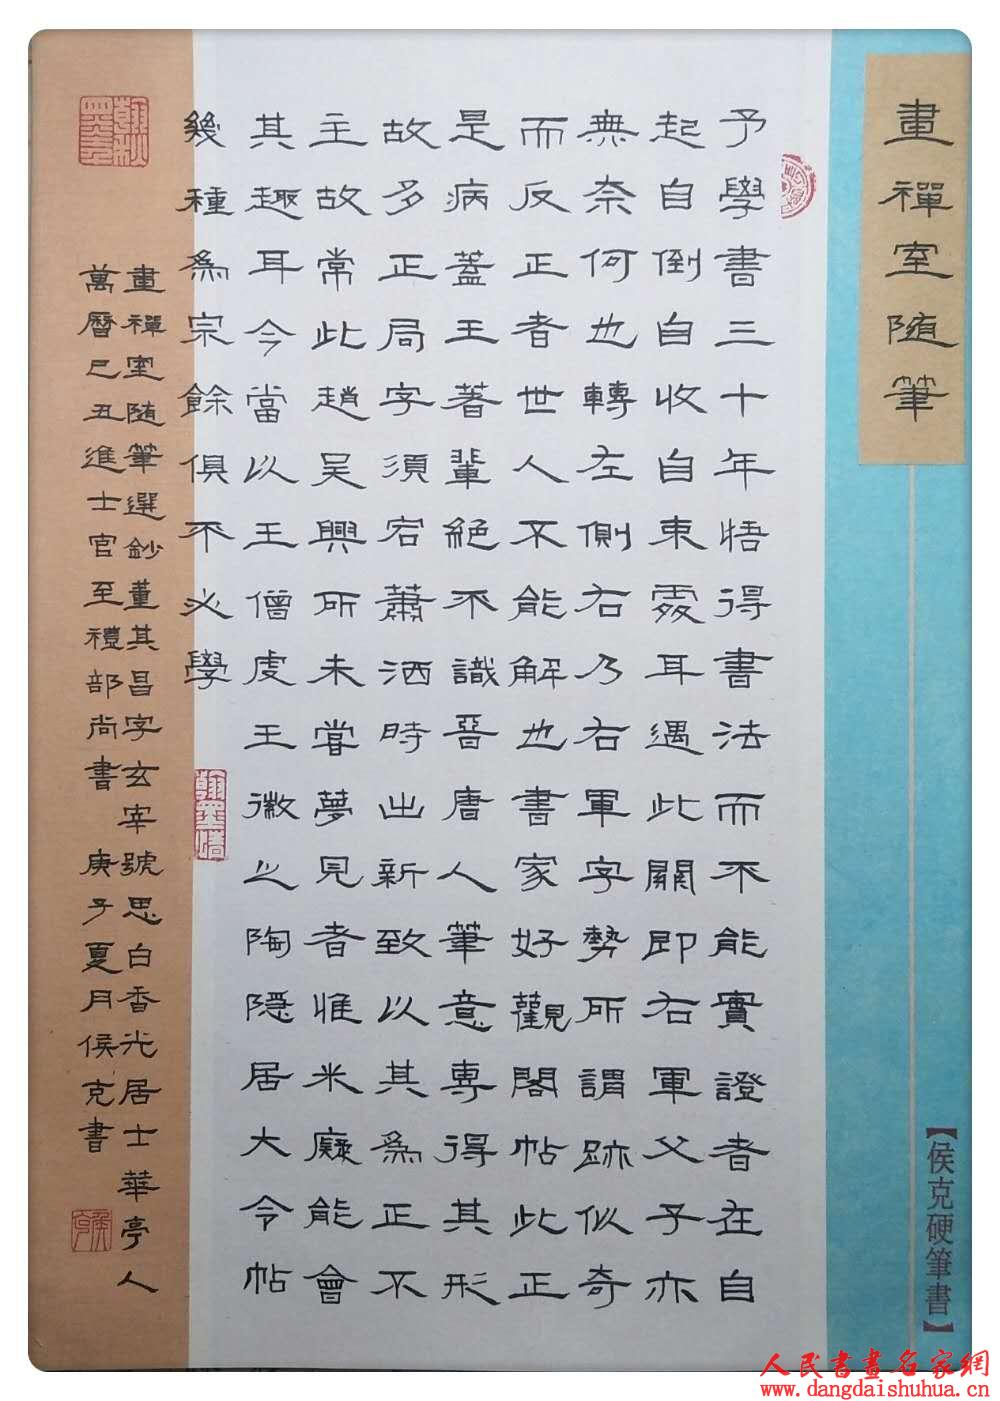 畫禪室随筆
予學書三十年悟得書法而不能實證者在自
起自倒自收自束處耳遇此關即右軍父子亦
無奈何也轉左側右乃右軍字勢所謂跡似奇
而反正者世人不能解也書家好觀閣帖此正
是病蓋王著輩絕不識晉唐人筆意專得其形
故多正局字須宕蕭洒時出新致以其為正不
主故常此趙吳興所未嘗夢見者惟米癡能會
其趣耳今當以王僧虔王徽之陶隱居大令帖
幾種為宗餘俱不必學
畫禪室随筆選鈔董其昌字玄宰號思白香光居士華亭人
萬曆己丑進士官至禮部尚書 庚子夏月侯克書
【侯克硬筆書】
人民書畫名家網
www.dangdaishuhua.cn